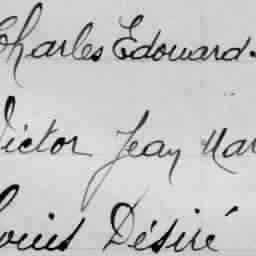 Charles Edouard
Victor Jean Mar
Louis Désiré